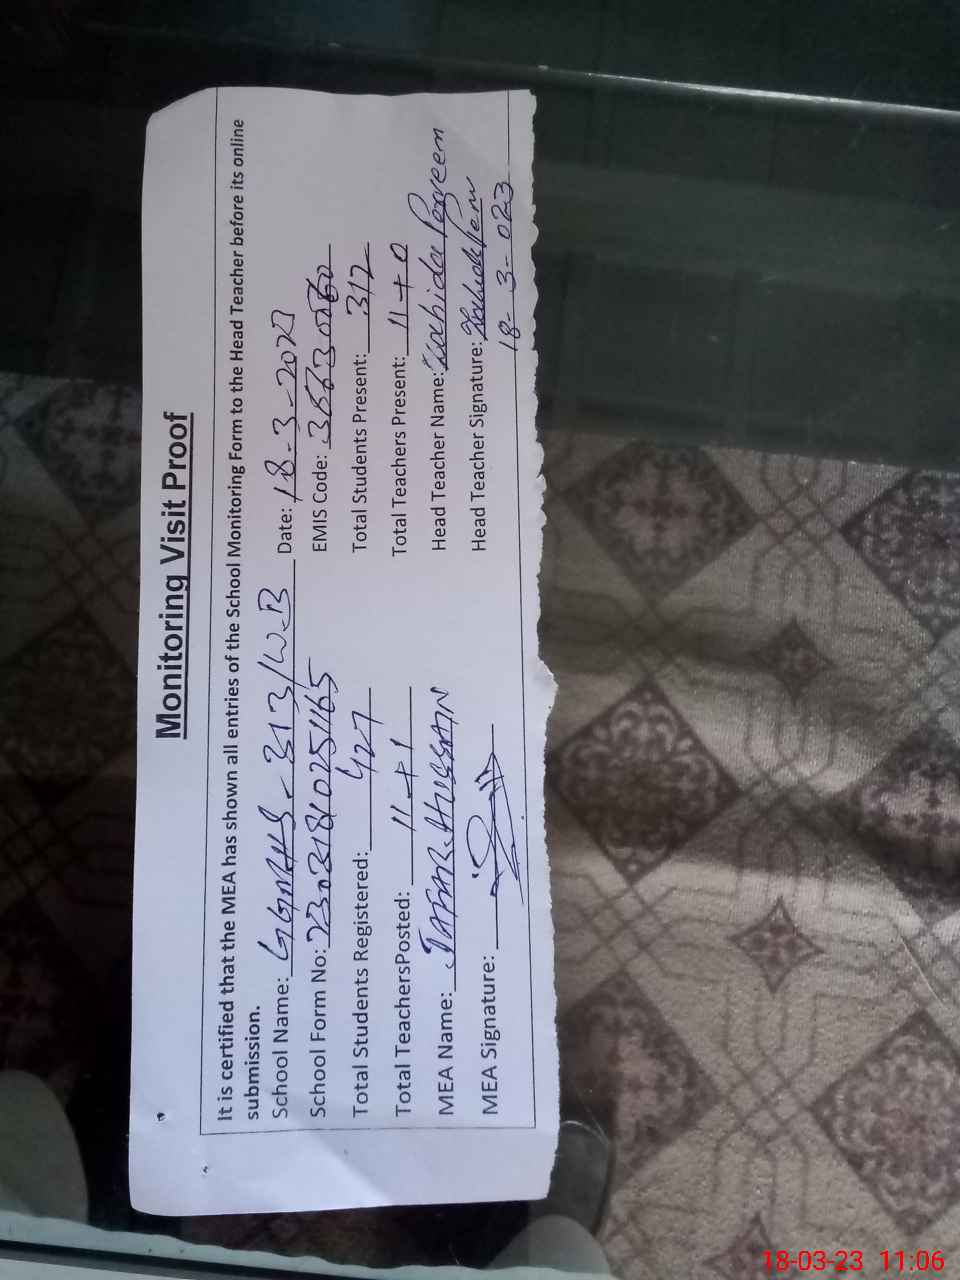 Monitoring Visit Proof
It is certified that the MEA has shown all entries of the School Monitoring Form to the Head Teacher before its online
submission.
School Name: GGMHS - 313/W-B Date: 18-3-2023
School Form No: EMIS Code:
Total Students Registered: 427 Total Students Present: 312
Total TeachersPosted: 11+1 Total Teachers Present: 11+0
MEA Name: Hussain Head Teacher Name: Zahida Perveen
MEA Signature: Head Teacher Signature:
18-3-023
18-03-23 11:06